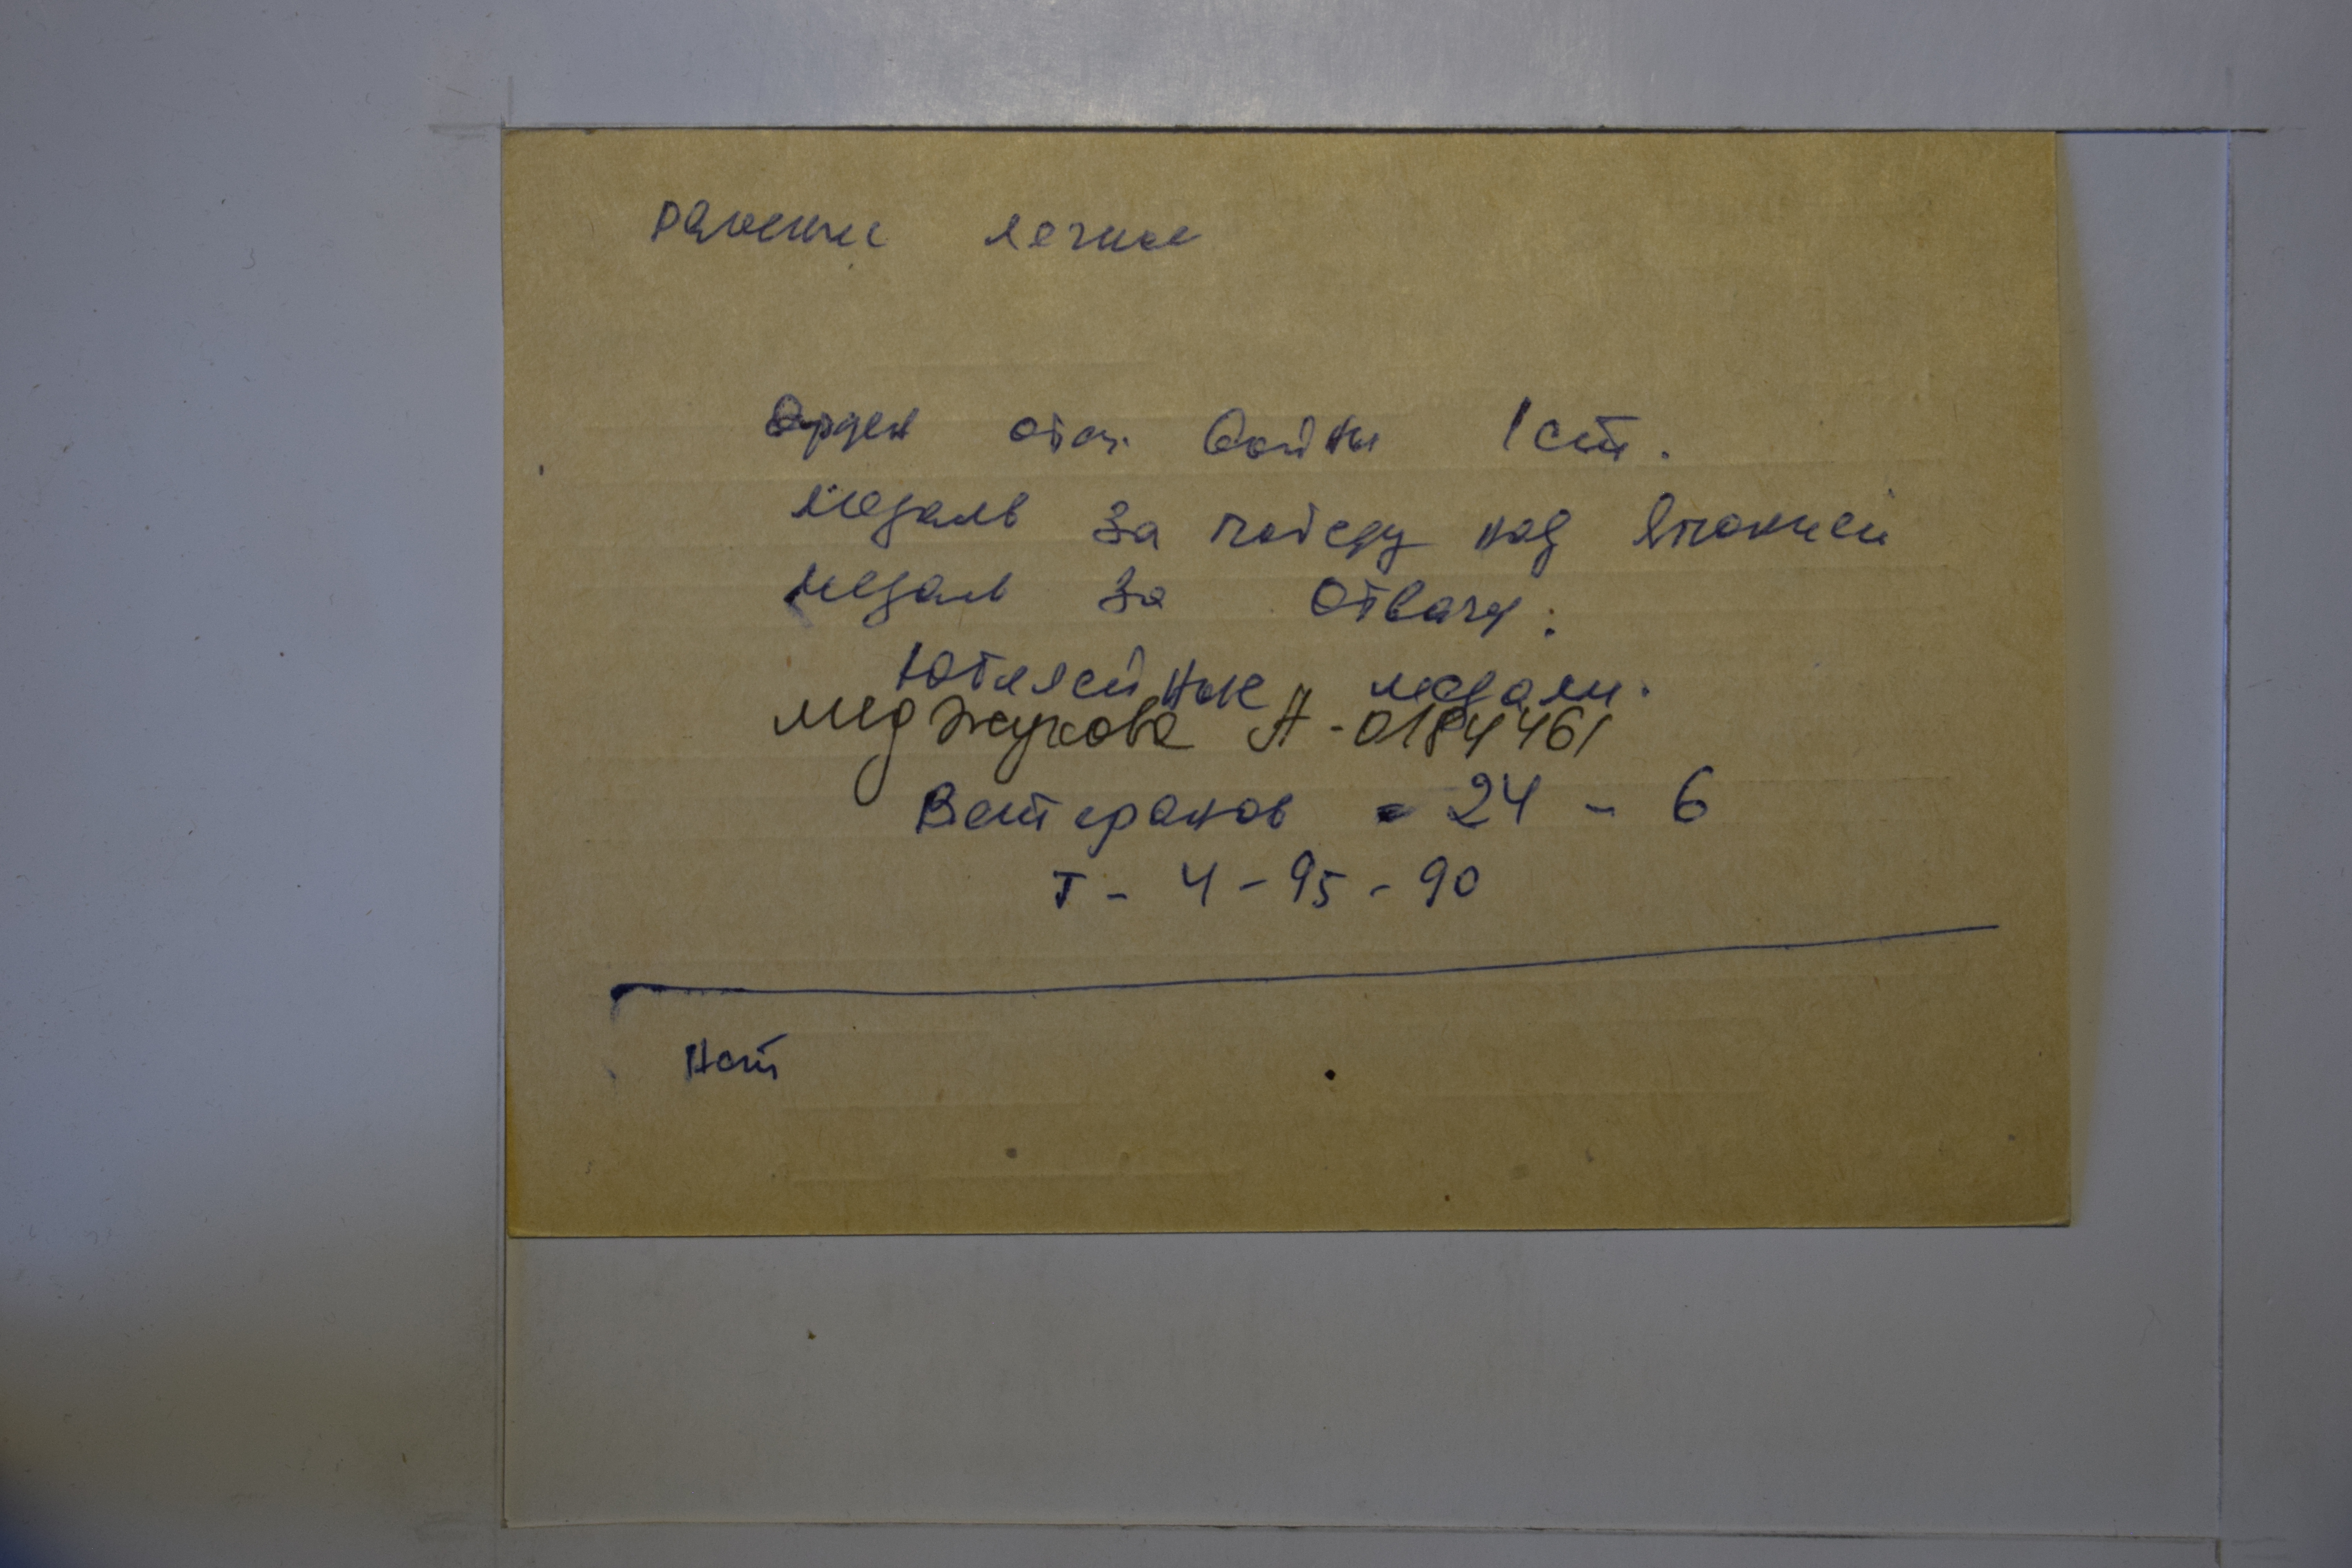 ранение легкое
Орден отеч. войны 1 ст.
медаль за победу над Японией
медаль за отвагу.
Юбилейные медали.
мед Жукова А-0184461
Ветеранов - 24 - 6
т - 4 - 95 - 90
Нет